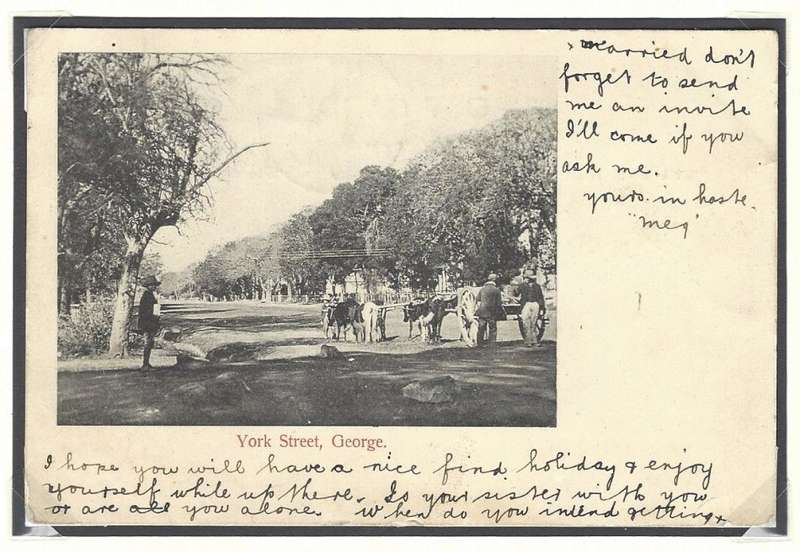 York Street, George.
I hope you will have a nice find holiday & enjoy
yourself while up there. Is your sister with you
or are all you alone. When do you intend getting
married don't
forget to send
me an invite
I'll come if you
ask me.
yours in haste.
"Meg"